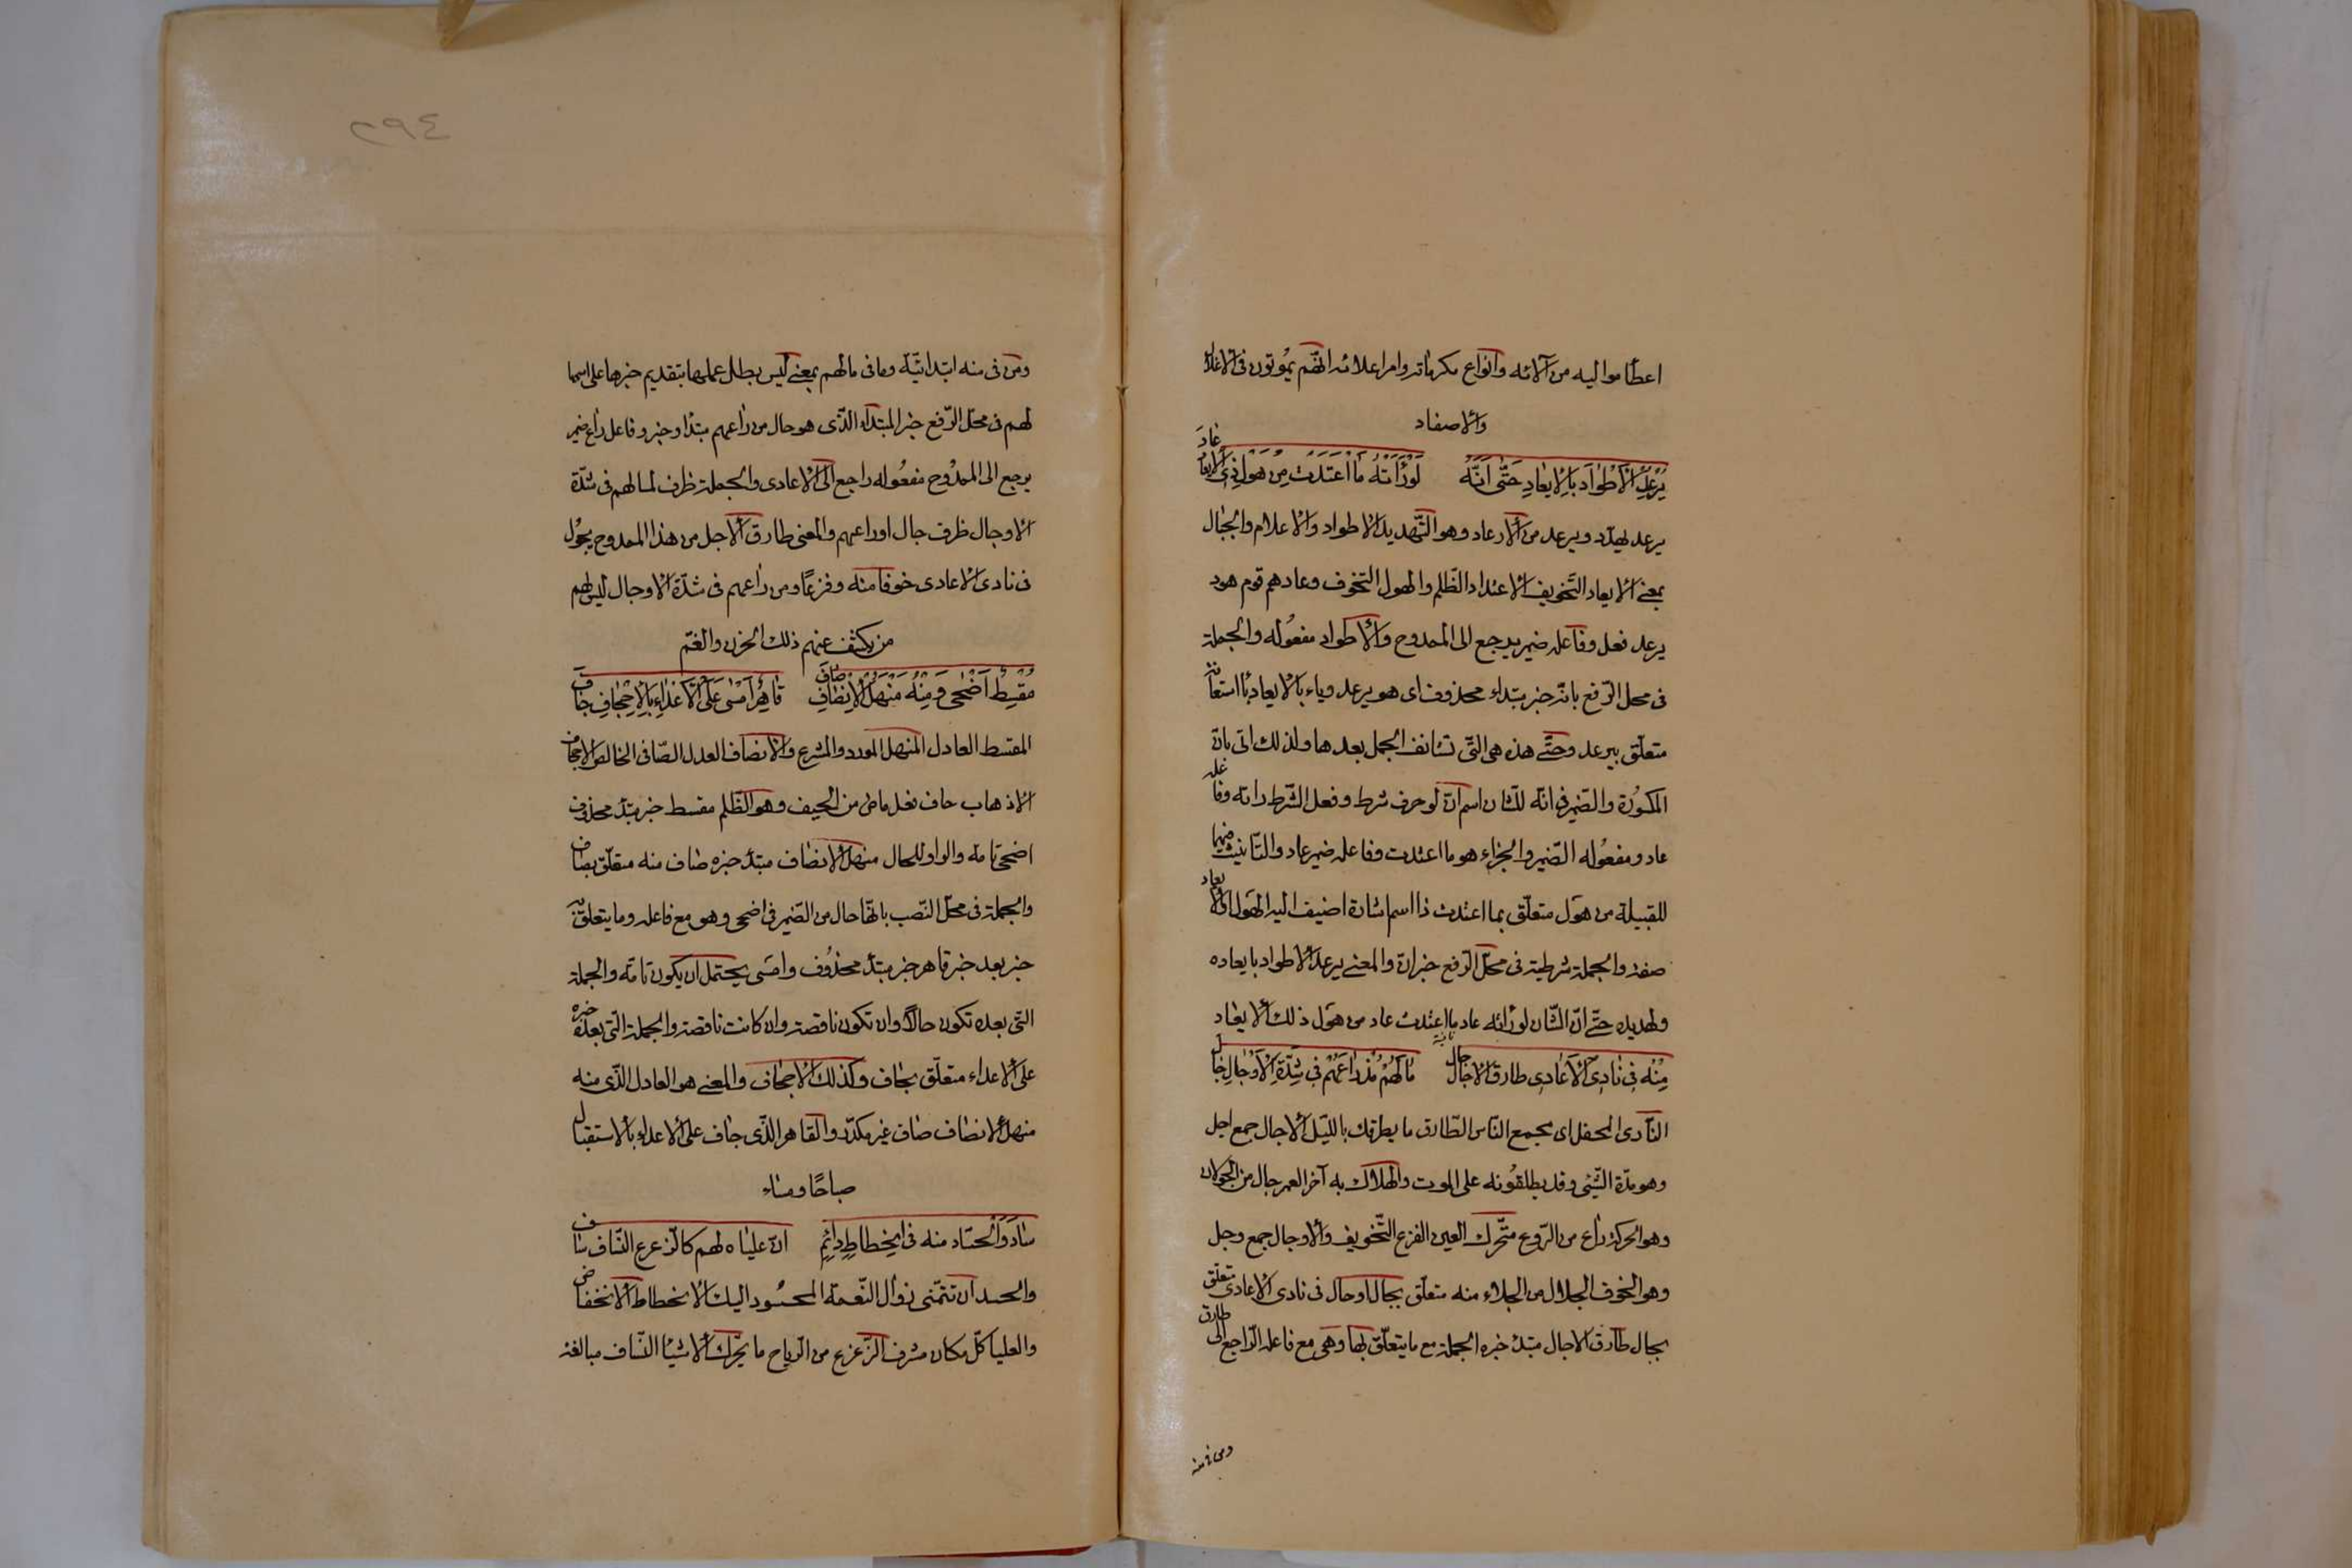 اعطاموا اليه من آلائه وانواع مكرماته وامراعلائه انهم يموتون فى الاغلال
والاصفاد
يرعد الاطواد بالايعاد حتى انه لو رأته ما اعتدت من هول ذى الايعاد عاد
يرعد يهدد ويرعد من الارعاد وهو التهديد الاطواد والاعلام والجبال
بمعنى الايعاد التخويف الاعتداد الظلم والهول التخوف وعادهم قوم هود
يرعد فعل وفاعله ضمير يرجع الى الممدوح والاطواد مفعوله والجملة
فى محل الرفع بانه خبر مبتداء محذوف اى هو يرعد وباء بالايعاد باء استعانة
متعلق بيرعد وحتى هذه هى التى تستانف الجمل بعدها ولذلك اتى بان
المكسورة والضمير فى انه للشان اسم ان لو حرف شرط وفعل الشرط راته وفاعله
عاد ومفعوله الضمير والجزاء هو ما اعتدت وفاعله ضمير عاد والتانيث فيهما
للقبيلة من هول متعلق بما اعتدت ذا اسم اشارة اضيف اليه الهول والايعاد
صفته والجملة شرطية فى محل الرفع خبر ان والمعنى يرعد الاطواد بايعاده
وتهديده حتى ان الشان لو رأته عاد ما اعتدت عاد من هول ذلك الايعاد
منه فى نادى الاعادى طارق الاجال جال ما لهم مذ راعهم فى شدة الاوجال جال
النادى المحفل اى مجمع الناس الطارق ما يطرقك بالليل الاجال جمع اجل
وهو مدة الشئ وقد يطلقونه على الموت والهلاك به آخر العمر جال من الجولان
وهو الحركة راع من الروع متحرك العين الفزع التخويف والاوجال جمع وجل
وهو الخوف الجلال من الجلاء منه متعلق بجال او حال فى نادى الاعادى متعلق
بجال طارق الاجال مبتدء خبره الجملة مع ما يتعلق بها وهى مع فاعله الراجع الى طارق
ومن فى منه
٢٩٤
ومن فى منه ابتدائية وما فى مالهم بمعنى ليس بطل عملها بتقديم خبرها على اسمها
لهم فى محل الرفع خبر المبتداء الذى هو حال من راعهم مبتداء وخبر وفاعل راع ضمير
يرجع الى الممدوح مفعوله راجع الى الاعادى والجملة ظرف لمالهم فى شدة
الاوجال ظرف جال اوراعهم والمعنى طارق الاجل من هذا الممدوح يجول
فى نادى الاعادى خوفا منه وفزعا ومن راعهم فى شدة الاوجال ليس لهم
من يكشف عنهم ذلك الحزن والغم
مقسط اضحى ومنه منهل الانصاف صاف قاهر امسى على الاعداء بالاجحاف جاف
المقسط العادل المنهل المورد والمشرع والانصاف العدل الصافى الخالص الاجحاف
الاذهاب حاف فعل ماض من الحيف وهو الظلم مقسط خبر مبتدء محذوف
اضحى تامة والواو للحال منهل الانصاف مبتدء خبره صاف منه متعلق بصاف
والجملة فى محل النصب بانها حال من الضمير فى اضحى وهو مع فاعله وما يتعلق به
خبر بعد خبر قاهر خبر مبتدء محذوف وامسى يحتمل ان يكون تامة والجملة
التى بعده تكون حالا وان تكون ناقصة وان كانت ناقصة والجملة التى بعده خبره
على الاعداء متعلق بجاف وكذلك الاجحاف والمعنى هو العادل الذى منه
منهل الانصاف صاف غير مكدر والقاهر الذى جاف على الاعداء بالاستقبال
صباحًا ومساء
ساد والحساد منه فى انحطاط دائم ان علياه لهم كالزعزع النساف ساف
والحسد ان تتمنى زوال النعمة المحسود اليك الانحطاط الانخفاض
والعليا كل مكان مشرف الزعزع من الرياح ما يحرك الاشيا النساف مبالغة